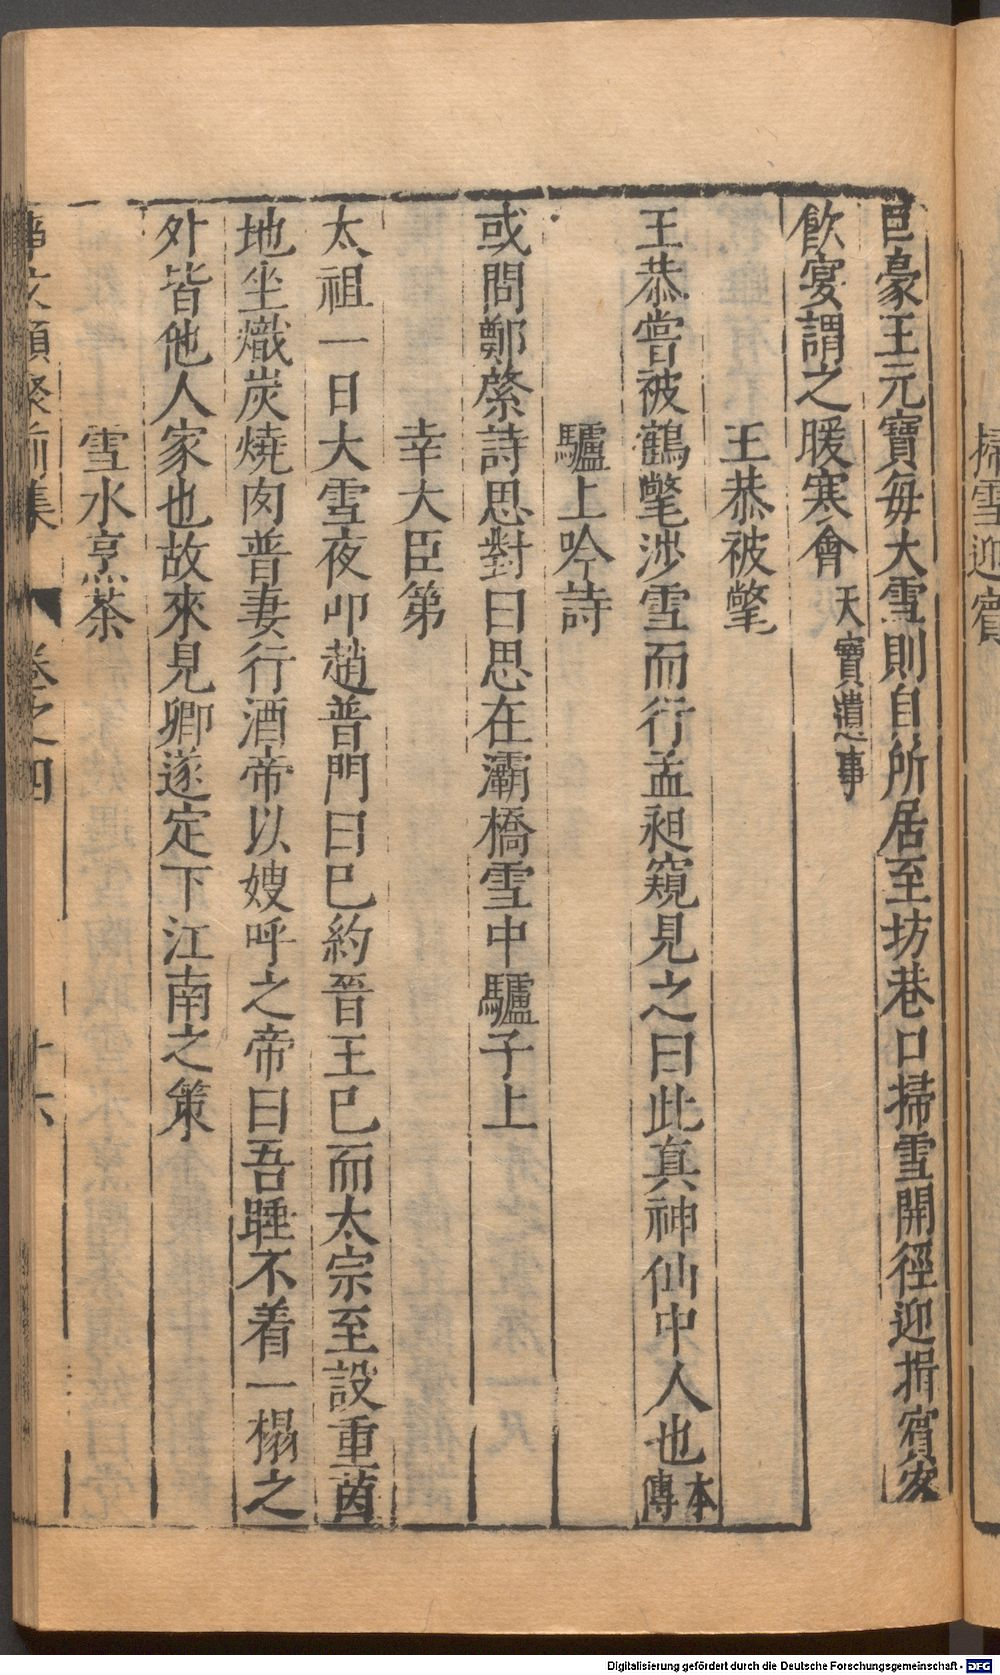 掃雪迎賓
巨豪王元寶每大雪則自所居至坊巷口掃雪開徑迎揖賓家
飲宴謂之暖寒會 天寶遺事
王恭被氅
王恭嘗被鶴氅涉雪而行孟昶窺見之曰此真神仙中人也 本傳
驢上吟詩
或問鄭綮詩思對曰思在灞橋雪中驢子上
幸大臣第
太祖一日大雪夜叩趙普門曰已約晉王已而太宗至設重茵
地坐熾炭燒肉普妻行酒帝以嫂呼之帝曰吾睡不着一榻之
外皆他人家也故來見卿遂定下江南之策
雪水烹茶
事文類聚前集 卷之四 十六
Digitalisierung gefördert durch die Deutsche Forschungsgemeinschaft - DFG